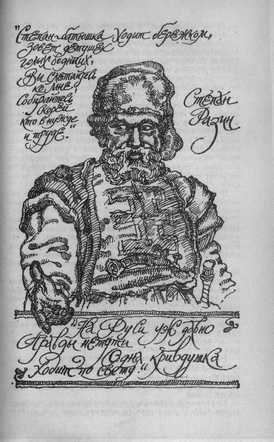 "Степан батюшка ходит бережком,
Зовет детушек
голых бедных,
Вы слетайтесь
ко мне
Собирайтесь
борзей
кто в нужде
и труде."
Степан
Разин
"На Руси уж давно
Правды нету-ти
Одна кривдушка
ходит по свету"